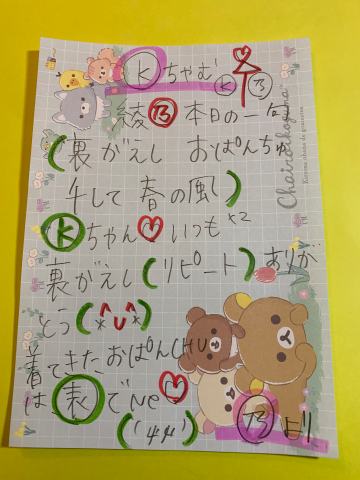 Ⓚちゃむ
Ⓚ ㋨
綾 ㋨ 本日の一句
(裏がえし おぱんちゅ
干して 春の風)
Ⓚちゃん♡いつもx2
裏がえし(リピート)ありが
とう(*^U^*)
着てきたおぱんCHU
は、表でNe♡
より
Chairoikoguma
Korilakkuma